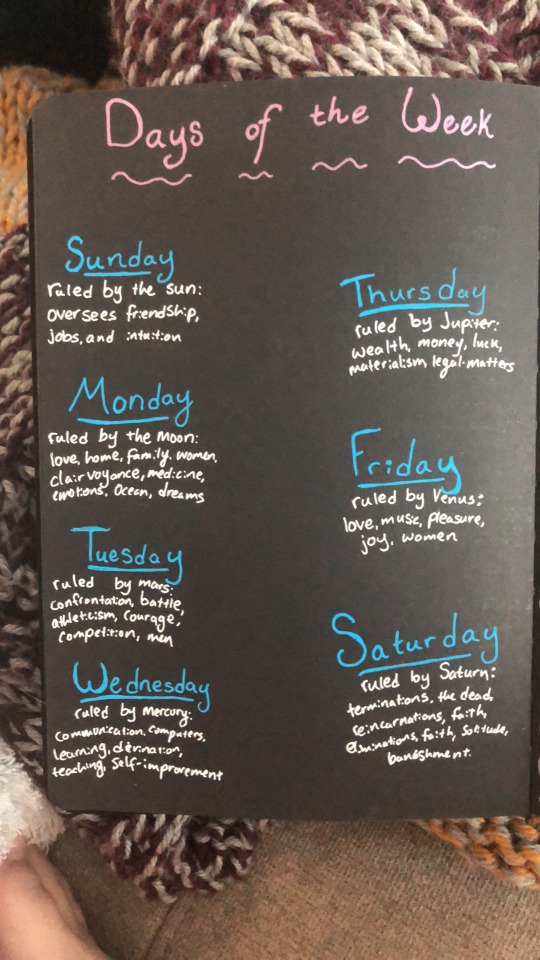 Days of the Week
Sunday
ruled by the sun:
oversees friendship,
jobs, and intuition
Monday
ruled by the Moon:
love, home, family, women,
clairvoyance, medicine,
emotions, Ocean, dreams
Tuesday
ruled by mars:
confrontation, battle,
athleticism, courage,
competition, men
Wednesday
ruled by Mercury:
communication, computers,
learning, divination,
teaching, self-improvement
Thursday
ruled by Jupiter:
wealth, money, luck,
materialism, legal matters
Friday
ruled by Venus:
love, music, pleasure,
joy, women
Saturday
ruled by Saturn:
terminations, the dead,
reincarnations, faith,
eliminations, faith, solitude,
banishment.